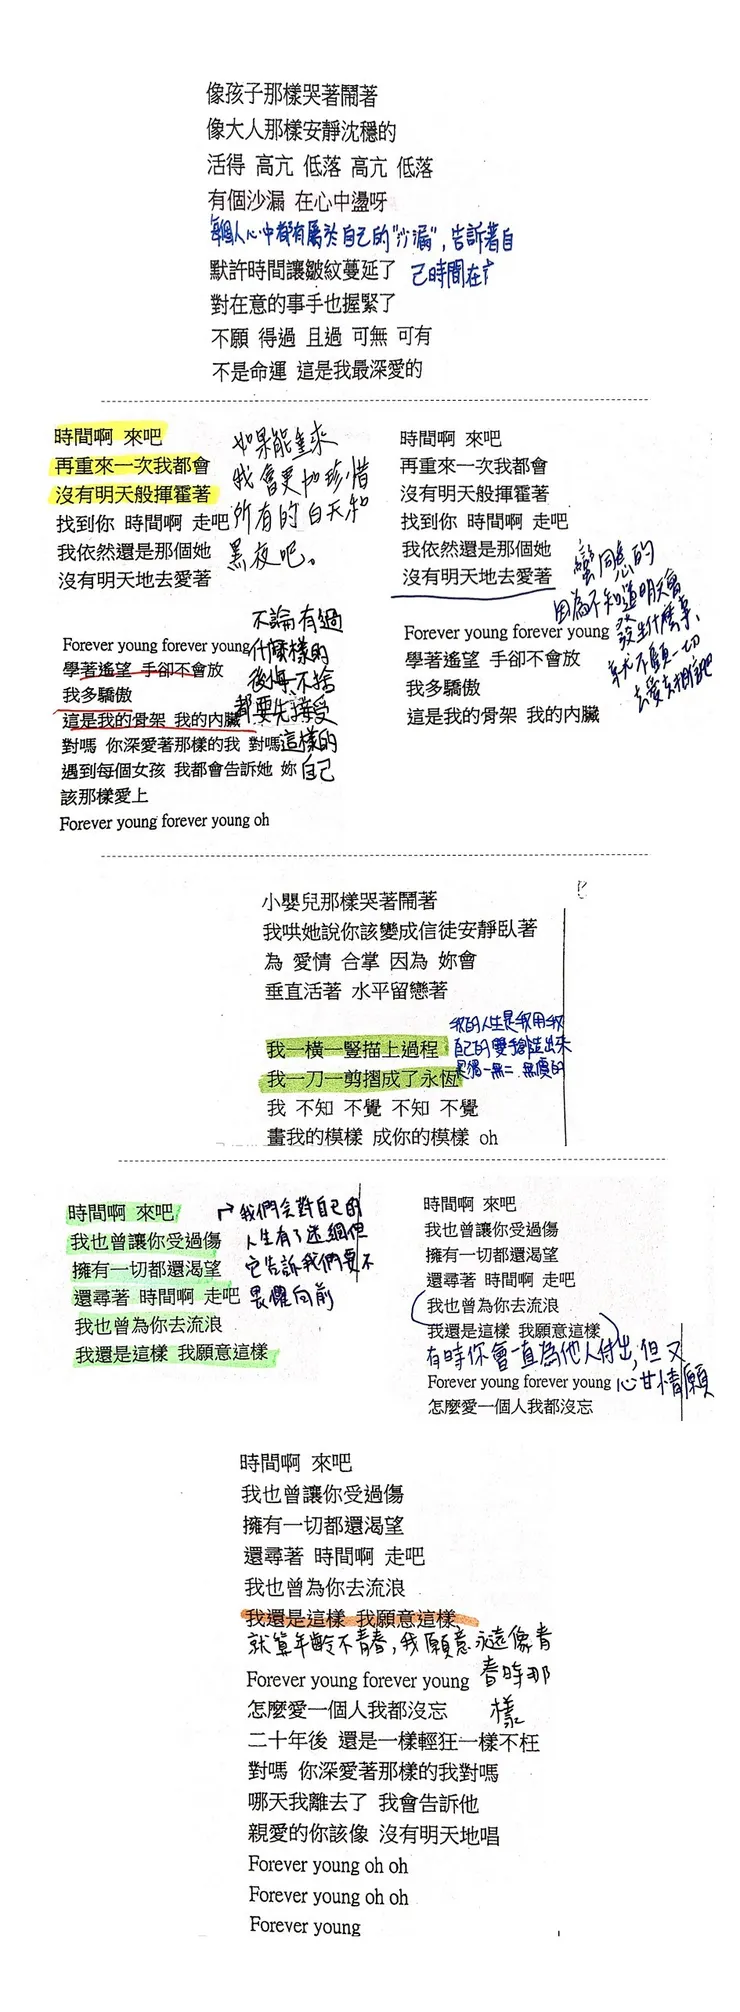 像孩子那樣哭著鬧著
像大人那樣安靜沈穩的
活得 高亢 低落 高亢 低落
有個沙漏 在心中盪呀
每個人心中都有屬於自己的"沙漏",告訴著自
己時間在
默許時間讓皺紋蔓延了
對在意的事手也握緊了
不願 得過 且過 可無 可有
不是命運 這是我最深愛的
時間啊 來吧
再重來一次我都會
沒有明天般揮霍著
找到你 時間啊 走吧
我依然還是那個她
沒有明天地去愛著
如果能重來
我會更加珍惜
所有的白天和
黑夜吧。
Forever young forever young
學著遙望 手卻不會放
我多驕傲
這是我的骨架 我的內臟
對嗎 你深愛著那樣的我 對嗎
遇到每個女孩 我都會告訴她 妳
該那樣愛上
Forever young forever young oh
不論有過
什麼樣的
後悔、不捨
都要先接受
這樣的
自己
時間啊 來吧
再重來一次我都會
沒有明天般揮霍著
找到你 時間啊 走吧
我依然還是那個她
沒有明天地去愛著
蠻同意的
因為不知道明天會
發生什麼事、
就不顧一切
去愛去相信吧
Forever young forever young
學著遙望 手卻不會放
我多驕傲
這是我的骨架 我的內臟
小嬰兒那樣哭著鬧著
我哄她說你該變成信徒安靜臥著
為 愛情 合掌 因為 妳會
垂直活著 水平留戀著
我一橫一豎描上過程
我一刀一剪摺成了永恆
我 不知 不覺 不知 不覺
畫我的模樣 成你的模樣 oh
我的人生是我用我
自己的雙手創造出來
是獨一無二、無價的
時間啊 來吧
我也曾讓你受過傷
擁有一切都還渴望
還尋著 時間啊 走吧
我也曾為你去流浪
我還是這樣 我願意這樣
→我們會對自己的
人生有了迷惘但
它告訴我們要不
畏懼向前
時間啊 來吧
我也曾讓你受過傷
擁有一切都還渴望
還尋著 時間啊 走吧
我也曾為你去流浪
我還是這樣 我願意這樣
有時你會一直為他人付出,但又
心甘情願
Forever young forever young
怎麼愛一個人我都沒忘
時間啊 來吧
我也曾讓你受過傷
擁有一切都還渴望
還尋著 時間啊 走吧
我也曾為你去流浪
我還是這樣 我願意這樣
就算年齡不青春,我願意永遠像青
春時那
樣
Forever young forever young
怎麼愛一個人我都沒忘
二十年後 還是一樣輕狂一樣不枉
對嗎 你深愛著那樣的我對嗎
哪天我離去了 我會告訴他
親愛的你該像 沒有明天地唱
Forever young oh oh
Forever young oh oh
Forever young